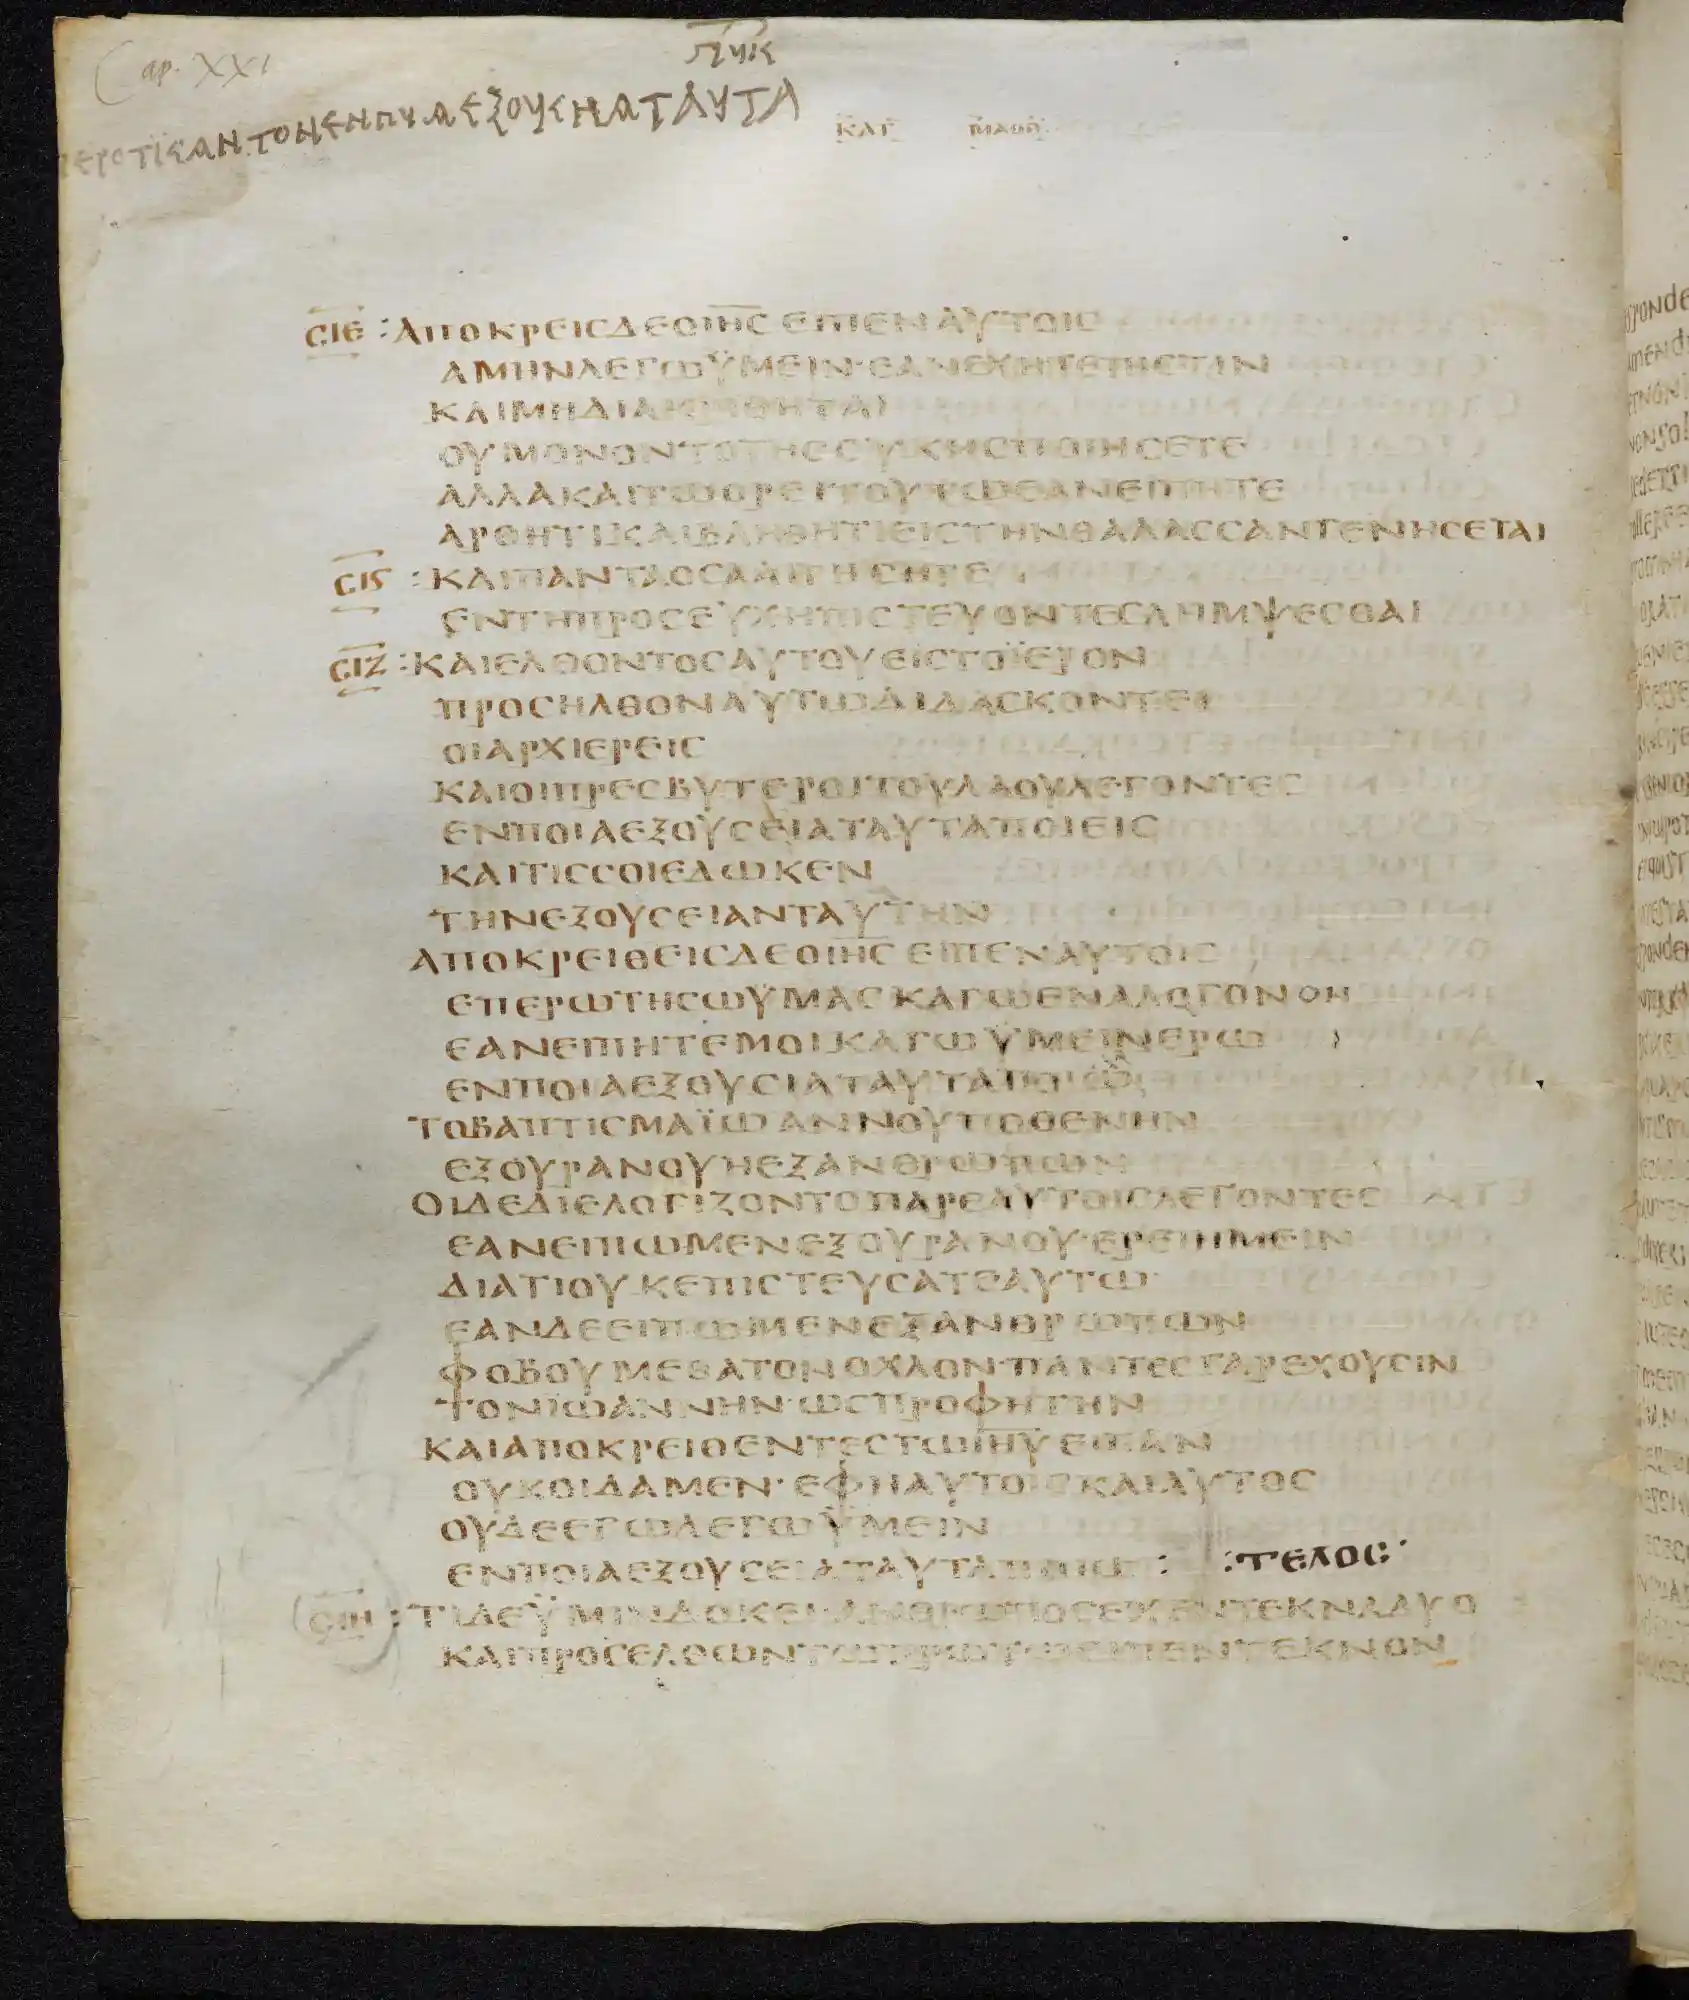 Cap. XXI
ΕΡΟΤΙCΑΝ ΤΟΝ ΕΝ ΠΥΑ ΕΞΟΥCΗΑ ΤΑΥΤΑ
ΚΑΤ ΜΑΘΘ
CΙΕ : ΑΠΟΚΡΕΙCΔΕΟΙΗC ΕΠΙΕΝ ΑΥΤΟΙC
ΑΜΗΝΛΕΓΩΫΜΕΙΝ·ΕΑΝΕΧΗΤΕΠΙCΤΙΝ
ΚΑΙΜΗΔΙΑΚΡΙΘΗΤΑΙ
ΟΥΜΟΝΟΝΤΟΤΗCCΥΚΗCΠΟΙΗCΕΤΕ
ΑΛΛΑΚΑΙΤΩΟΡΕΙΤΟΥΤΩΕΑΝΕΙΠΗΤΕ
ΑΡΘΗΤΙΚΑΙΒΛΗΘΗΤΙΕΙCΤΗΝΘΑΛΑCCΑΝΓΕΝΗCΕΤΑΙ
CΙϚ : ΚΑΙΠΑΝΤΑΟCΑΑΙΤΗCΗΤΕ
ΕΝΤΗΠΡΟCΕΥΧΗΠΙCΤΕΥΟΝΤΕCΛΗΜΨΕCΘΑΙ
CΙΖ : ΚΑΙΕΛΘΟΝΤΟCΑΥΤΟΥΕΙCΤΟΪΕΡΟΝ
ΠΡΟCΗΛΘΟΝΑΥΤΩΔΙΔΑCΚΟΝΤΕΙ
ΟΙΑΡΧΙΕΡΕΙC
ΚΑΙΟΙΠΡΕCΒΥΤΕΡΟΙΤΟΥΛΑΟΥΛΕΓΟΝΤΕC
ΕΝΠΟΙΑΕΞΟΥCΕΙΑΤΑΥΤΑΠΟΙΕΙC
ΚΑΙΤΙCCΟΙΕΔΩΚΕΝ
ΤΗΝΕΞΟΥCΕΙΑΝΤΑΥΤΗΝ
ΑΠΟΚΡΕΙΘΕΙCΔΕΟΙΗC ΕΙΠΕΝΑΥΤΟΙC
ΕΠΕΡΩΤΗCΩΥΜΑCΚΑΓΩΕΝΑΛΟΓΟΝ ΟΝ
ΕΑΝΕΙΠΗΤΕΜΟΙΚΑΓΩΫΜΕΙΝΕΡΩ
ΕΝΠΟΙΑΕΞΟΥCΙΑΤΑΥΤΑΠΟΙΩ
ΤΟΒΑΠΤΙCΜΑΪΩΑΝΝΟΥΠΟΘΕΝΗΝ
ΕΞΟΥΡΑΝΟΥΗΕΞΑΝΘΡΩΠΩΝ
ΟΙΔΕΔΙΕΛΟΓΙΖΟΝΤΟΠΑΡΕΑΥΤΟΙCΛΕΓΟΝΤΕC
ΕΑΝΕΙΠΩΜΕΝΕΞΟΥΡΑΝΟΥ·ΕΡΕΙΗΜΕΙΝ
ΔΙΑΤΙΟΥΚΕΠΙCΤΕΥCΑΤΕΑΥΤΩ
ΕΑΝΔΕΕΙΠΩΜΕΝΕΞΑΝΘΡΩΠΩΝ
ΦΟΒΟΥΜΕΘΑΤΟΝΟΧΛΟΝ·ΠΑΝΤΕCΓΑΡΕΧΟΥCΙΝ
ΤΟΝΪΩΑΝΝΗΝ·ΩCΠΡΟΦΗΤΗΝ
ΚΑΙΑΠΟΚΡΕΙΘΕΝΤΕCΤΩΙΗΥ ΕΙΠΑΝ
ΟΥΚΟΙΔΑΜΕΝ·ΕΦΗΑΥΤΟΙCΚΑΙΑΥΤΟC
ΟΥΔΕΕΓΩΛΕΓΩΫΜΕΙΝ
ΕΝΠΟΙΑΕΞΟΥCΕΙΑΤΑΥΤΑΠΟΙΩ : :ΤΕΛΟC:
CΙΗ : ΤΙΔΕΫΜΙΝΔΟΚΕΙΑΝΘΡΩΠΟCΕΙΧΕΝΤΕΚΝΑΔΥΟ
ΚΑΙΠΡΟCΕΛΘΩΝΤΩΠΡΩΤΩΕΙΠΕΝΤΕΚΝΟΝ